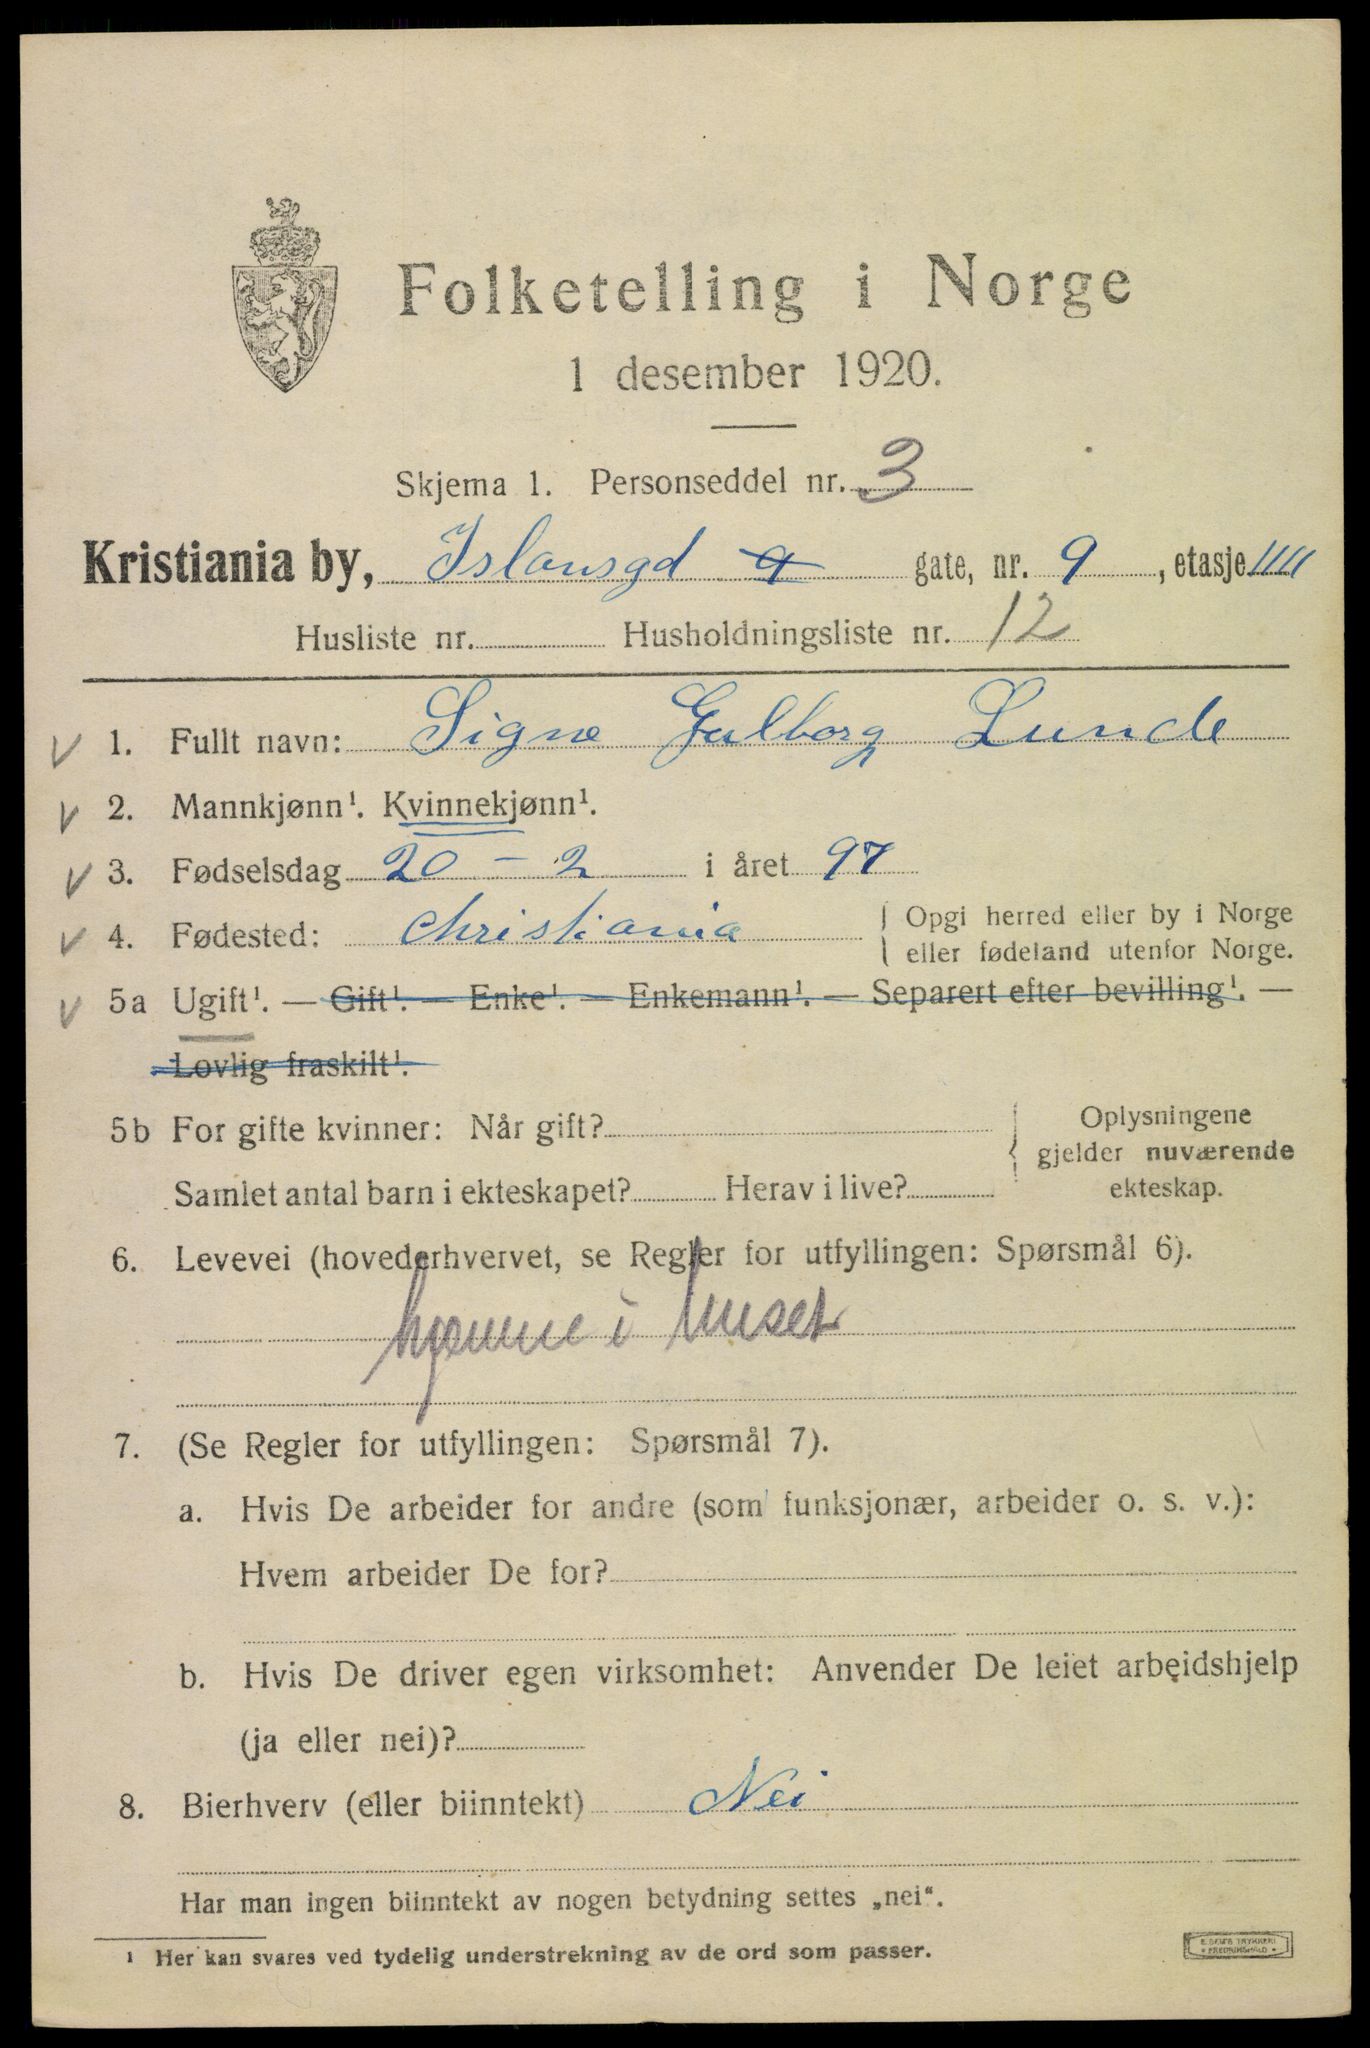 Folketelling i Norge
1 desember 1920.
Skjema 1. Personseddel nr. 3
Kristiania by, Islansgd 9 gate, nr. 9, etasje IIII
Husliste nr. Husholdningsliste nr. 12
1. Fullt navn: Signe Gulborg Lunde
2. Mannkjønn¹. Kvinnekjønn¹.
3. Fødselsdag 20 - 2 i året 97
4. Fødested: Christiania { Opgi herred eller by i Norge
eller fødeland utenfor Norge.
5a Ugift¹. — Gift¹. — Enke¹. — Enkemann¹. — Separert efter bevilling¹. —
Lovlig fraskilt¹.
5b For gifte kvinner: Når gift?
Samlet antal barn i ekteskapet? Herav i live?
Oplysningene
gjelder nuværende
ekteskap.
6. Levevei (hovederhvervet, se Regler for utfyllingen: Spørsmål 6).
hjemme i huset
7. (Se Regler for utfyllingen: Spørsmål 7).
a. Hvis De arbeider for andre (som funksjonær, arbeider o. s. v.):
Hvem arbeider De for?
b. Hvis De driver egen virksomhet: Anvender De leiet arbeidshjelp
(ja eller nei)?
8. Bierhverv (eller biinntekt) Nei
Har man ingen biinntekt av nogen betydning settes „nei“.
¹ Her kan svares ved tydelig understrekning av de ord som passer.